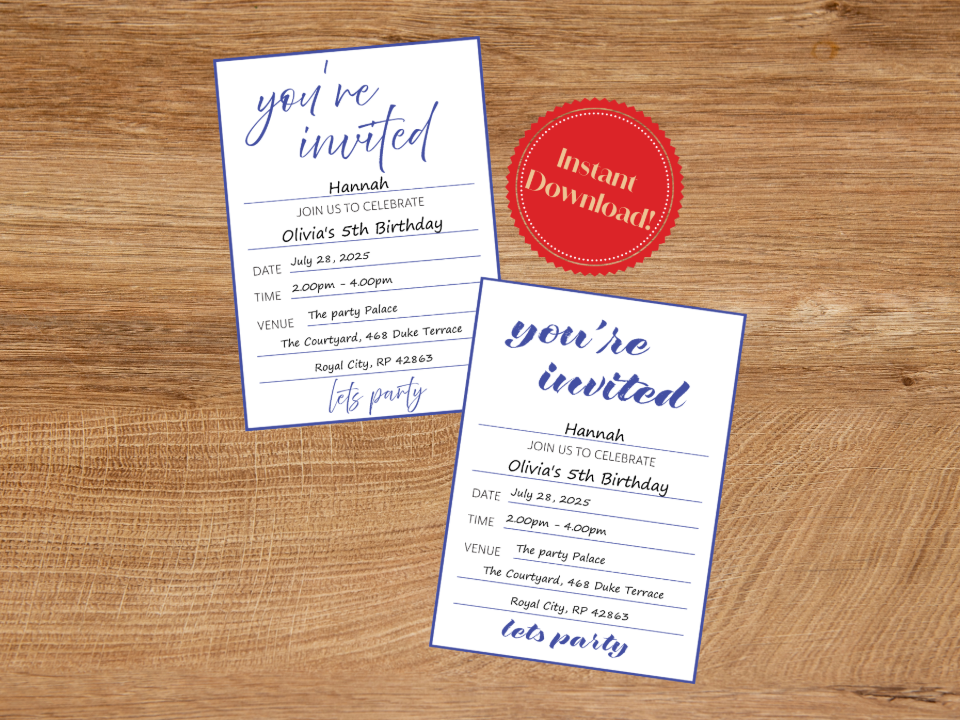 you're
invited
Hannah
JOIN US TO CELEBRATE
Olivia's 5th Birthday
DATE July 28, 2025
TIME 2.00pm - 4.00pm
VENUE The party Palace
The Courtyard, 468 Duke Terrace
Royal City, RP 42863
lets party
Instant
Download!
you're
invited
Hannah
JOIN US TO CELEBRATE
Olivia's 5th Birthday
DATE July 28, 2025
TIME 2.00pm - 4.00pm
VENUE The party Palace
The Courtyard, 468 Duke Terrace
Royal City, RP 42863
lets party